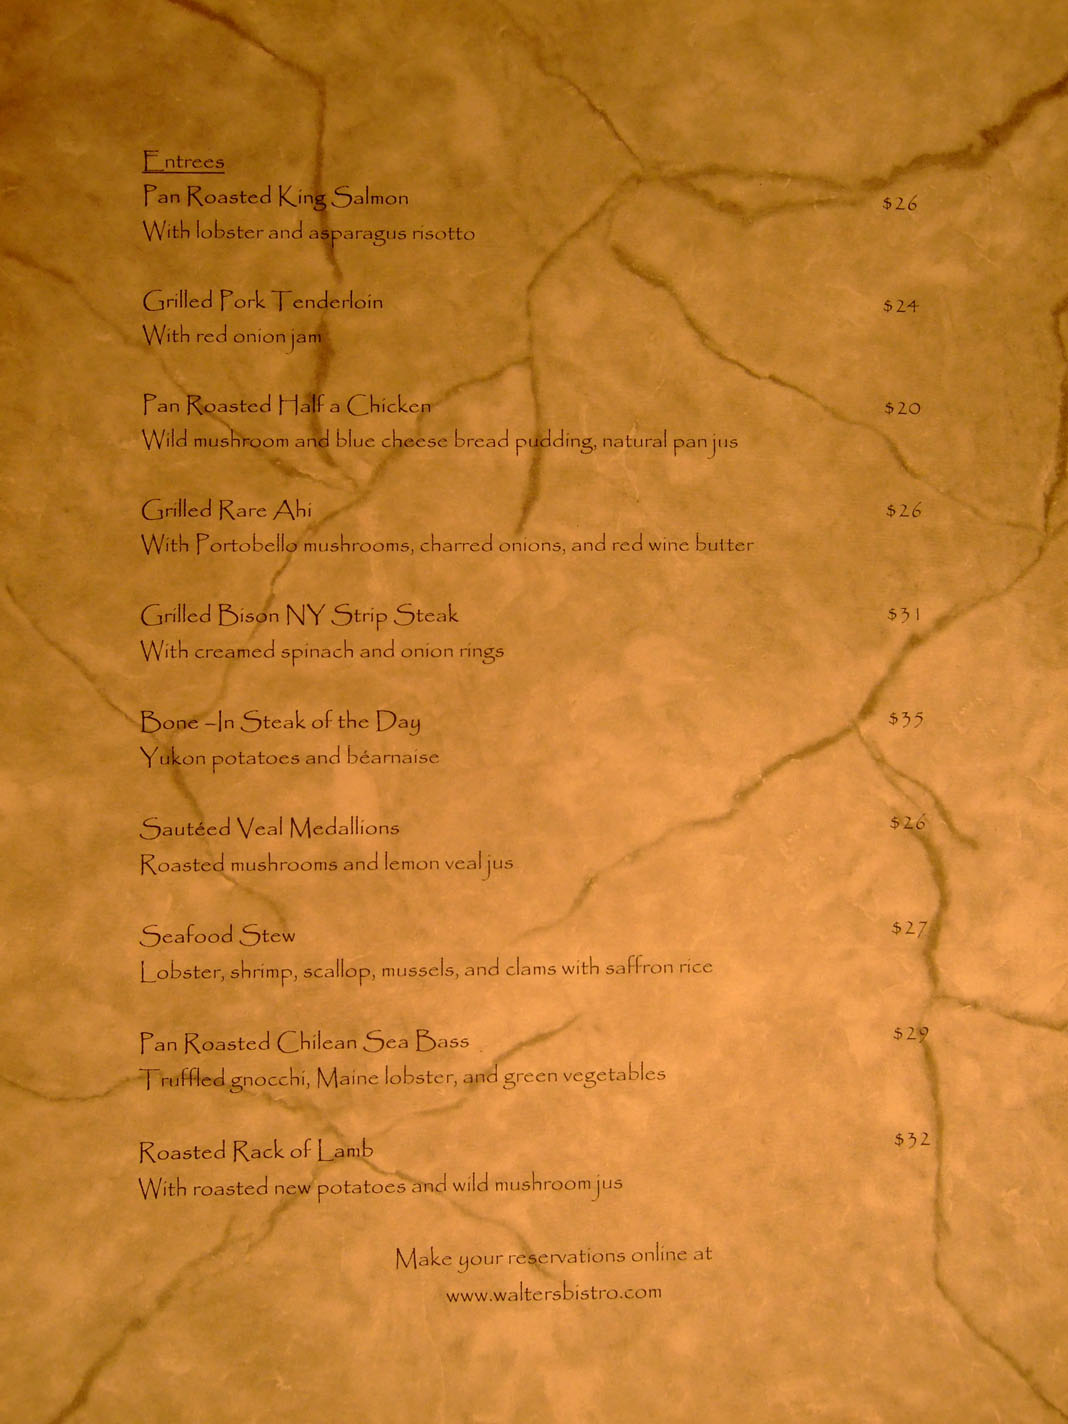 Entrees
Pan Roasted King Salmon $26
With lobster and asparagus risotto
Grilled Pork Tenderloin $24
With red onion jam
Pan Roasted Half a Chicken $20
Wild mushroom and blue cheese bread pudding, natural pan jus
Grilled Rare Ahi $26
With Portobello mushrooms, charred onions, and red wine butter
Grilled Bison NY Strip Steak $31
With creamed spinach and onion rings
Bone –In Steak of the Day $35
Yukon potatoes and béarnaise
Sautéed Veal Medallions $26
Roasted mushrooms and lemon veal jus
Seafood Stew $27
Lobster, shrimp, scallop, mussels, and clams with saffron rice
Pan Roasted Chilean Sea Bass $29
Truffled gnocchi, Maine lobster, and green vegetables
Roasted Rack of Lamb $32
With roasted new potatoes and wild mushroom jus
Make your reservations online at
www.waltersbistro.com